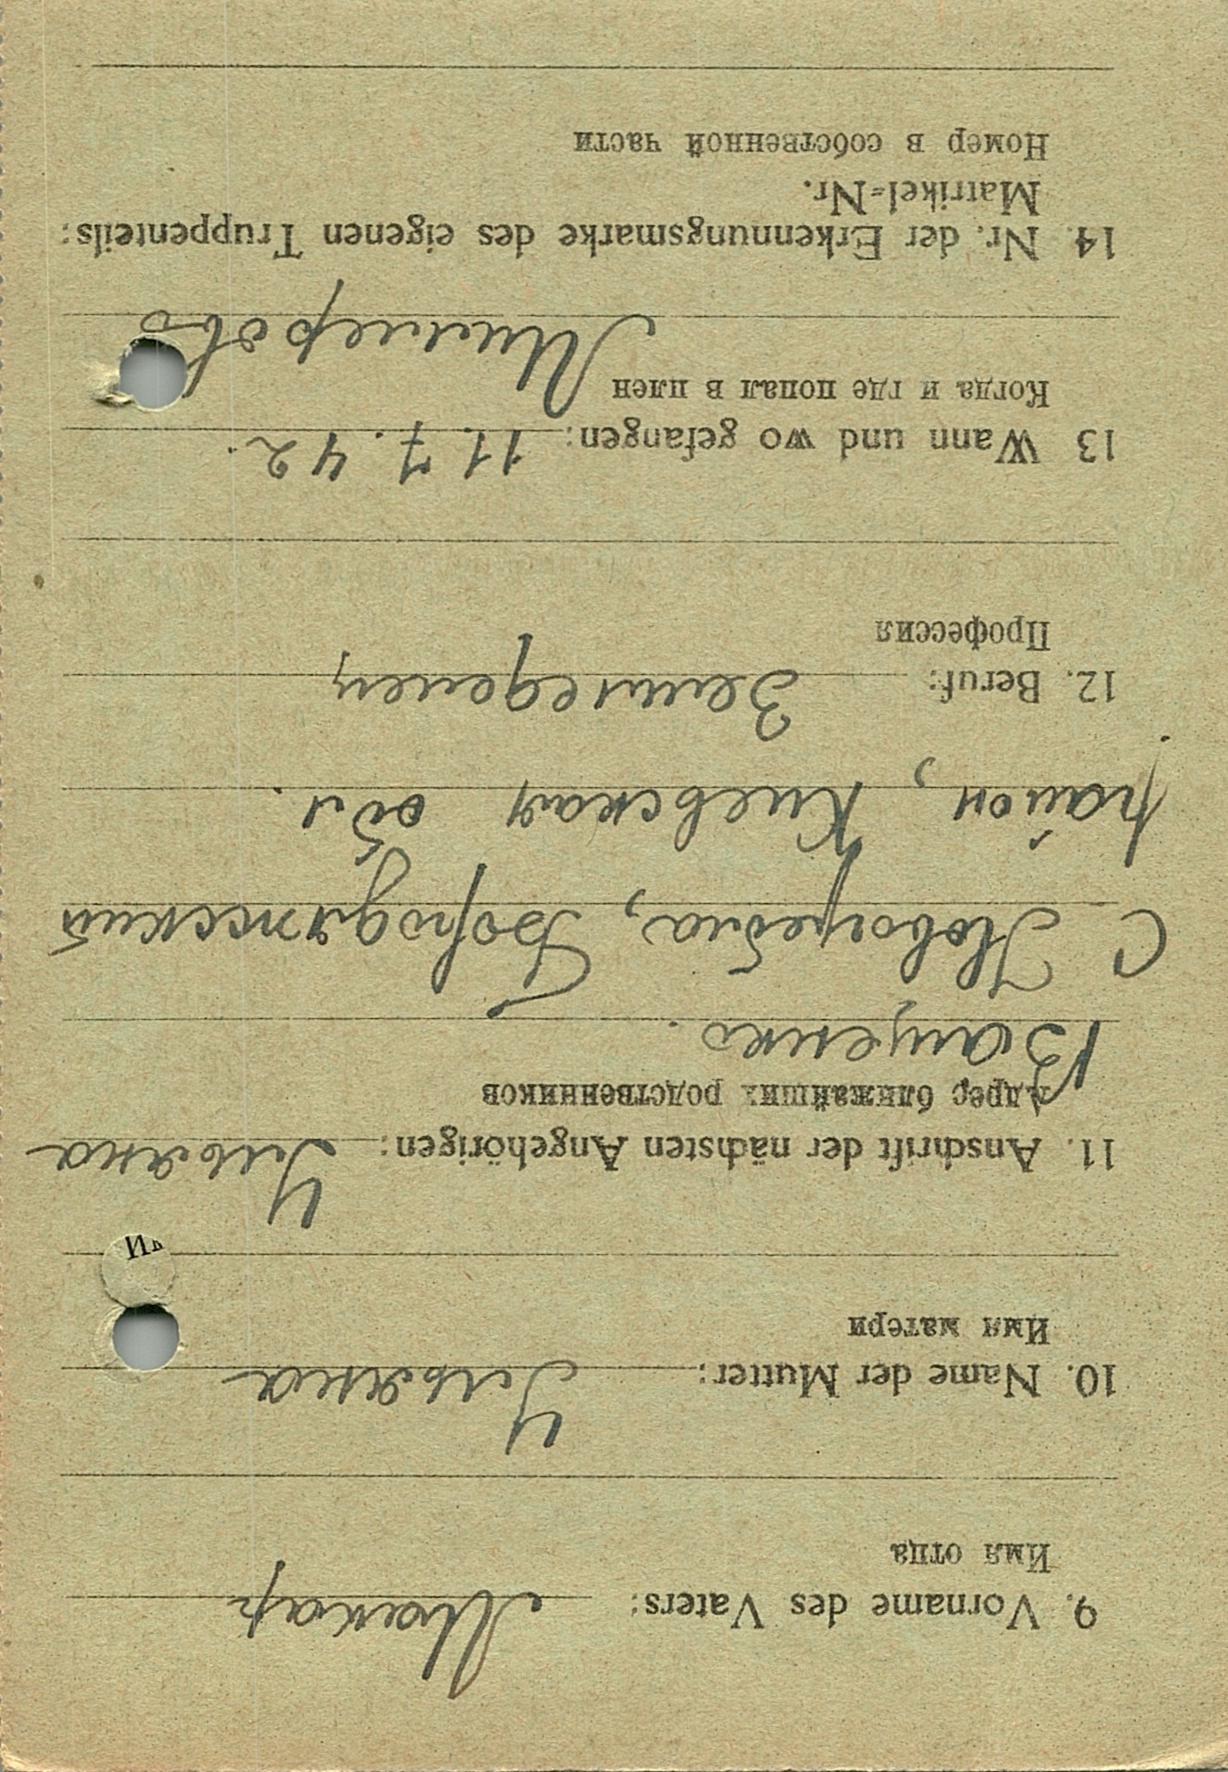 9. Vorname des Vaters: Макар
Имя отца
10. Name der Mutter: Ульяна
Имя матери
11. Anschrift der nächsten Angehörigen: Ульяна
Адрес ближайших родственников
Ващенко.
С. Новогребла, Бородяжеский
район, Киевская обл.
12. Beruf: Земледелец
Профессия
13 Wann und wo gefangen: 11. 7. 42.
Когда и где попал в плен
Миллерово
14. Nr. der Erkennungsmarke des eigenen Truppenteils:
Matrikel-Nr.
Номер в собственной части